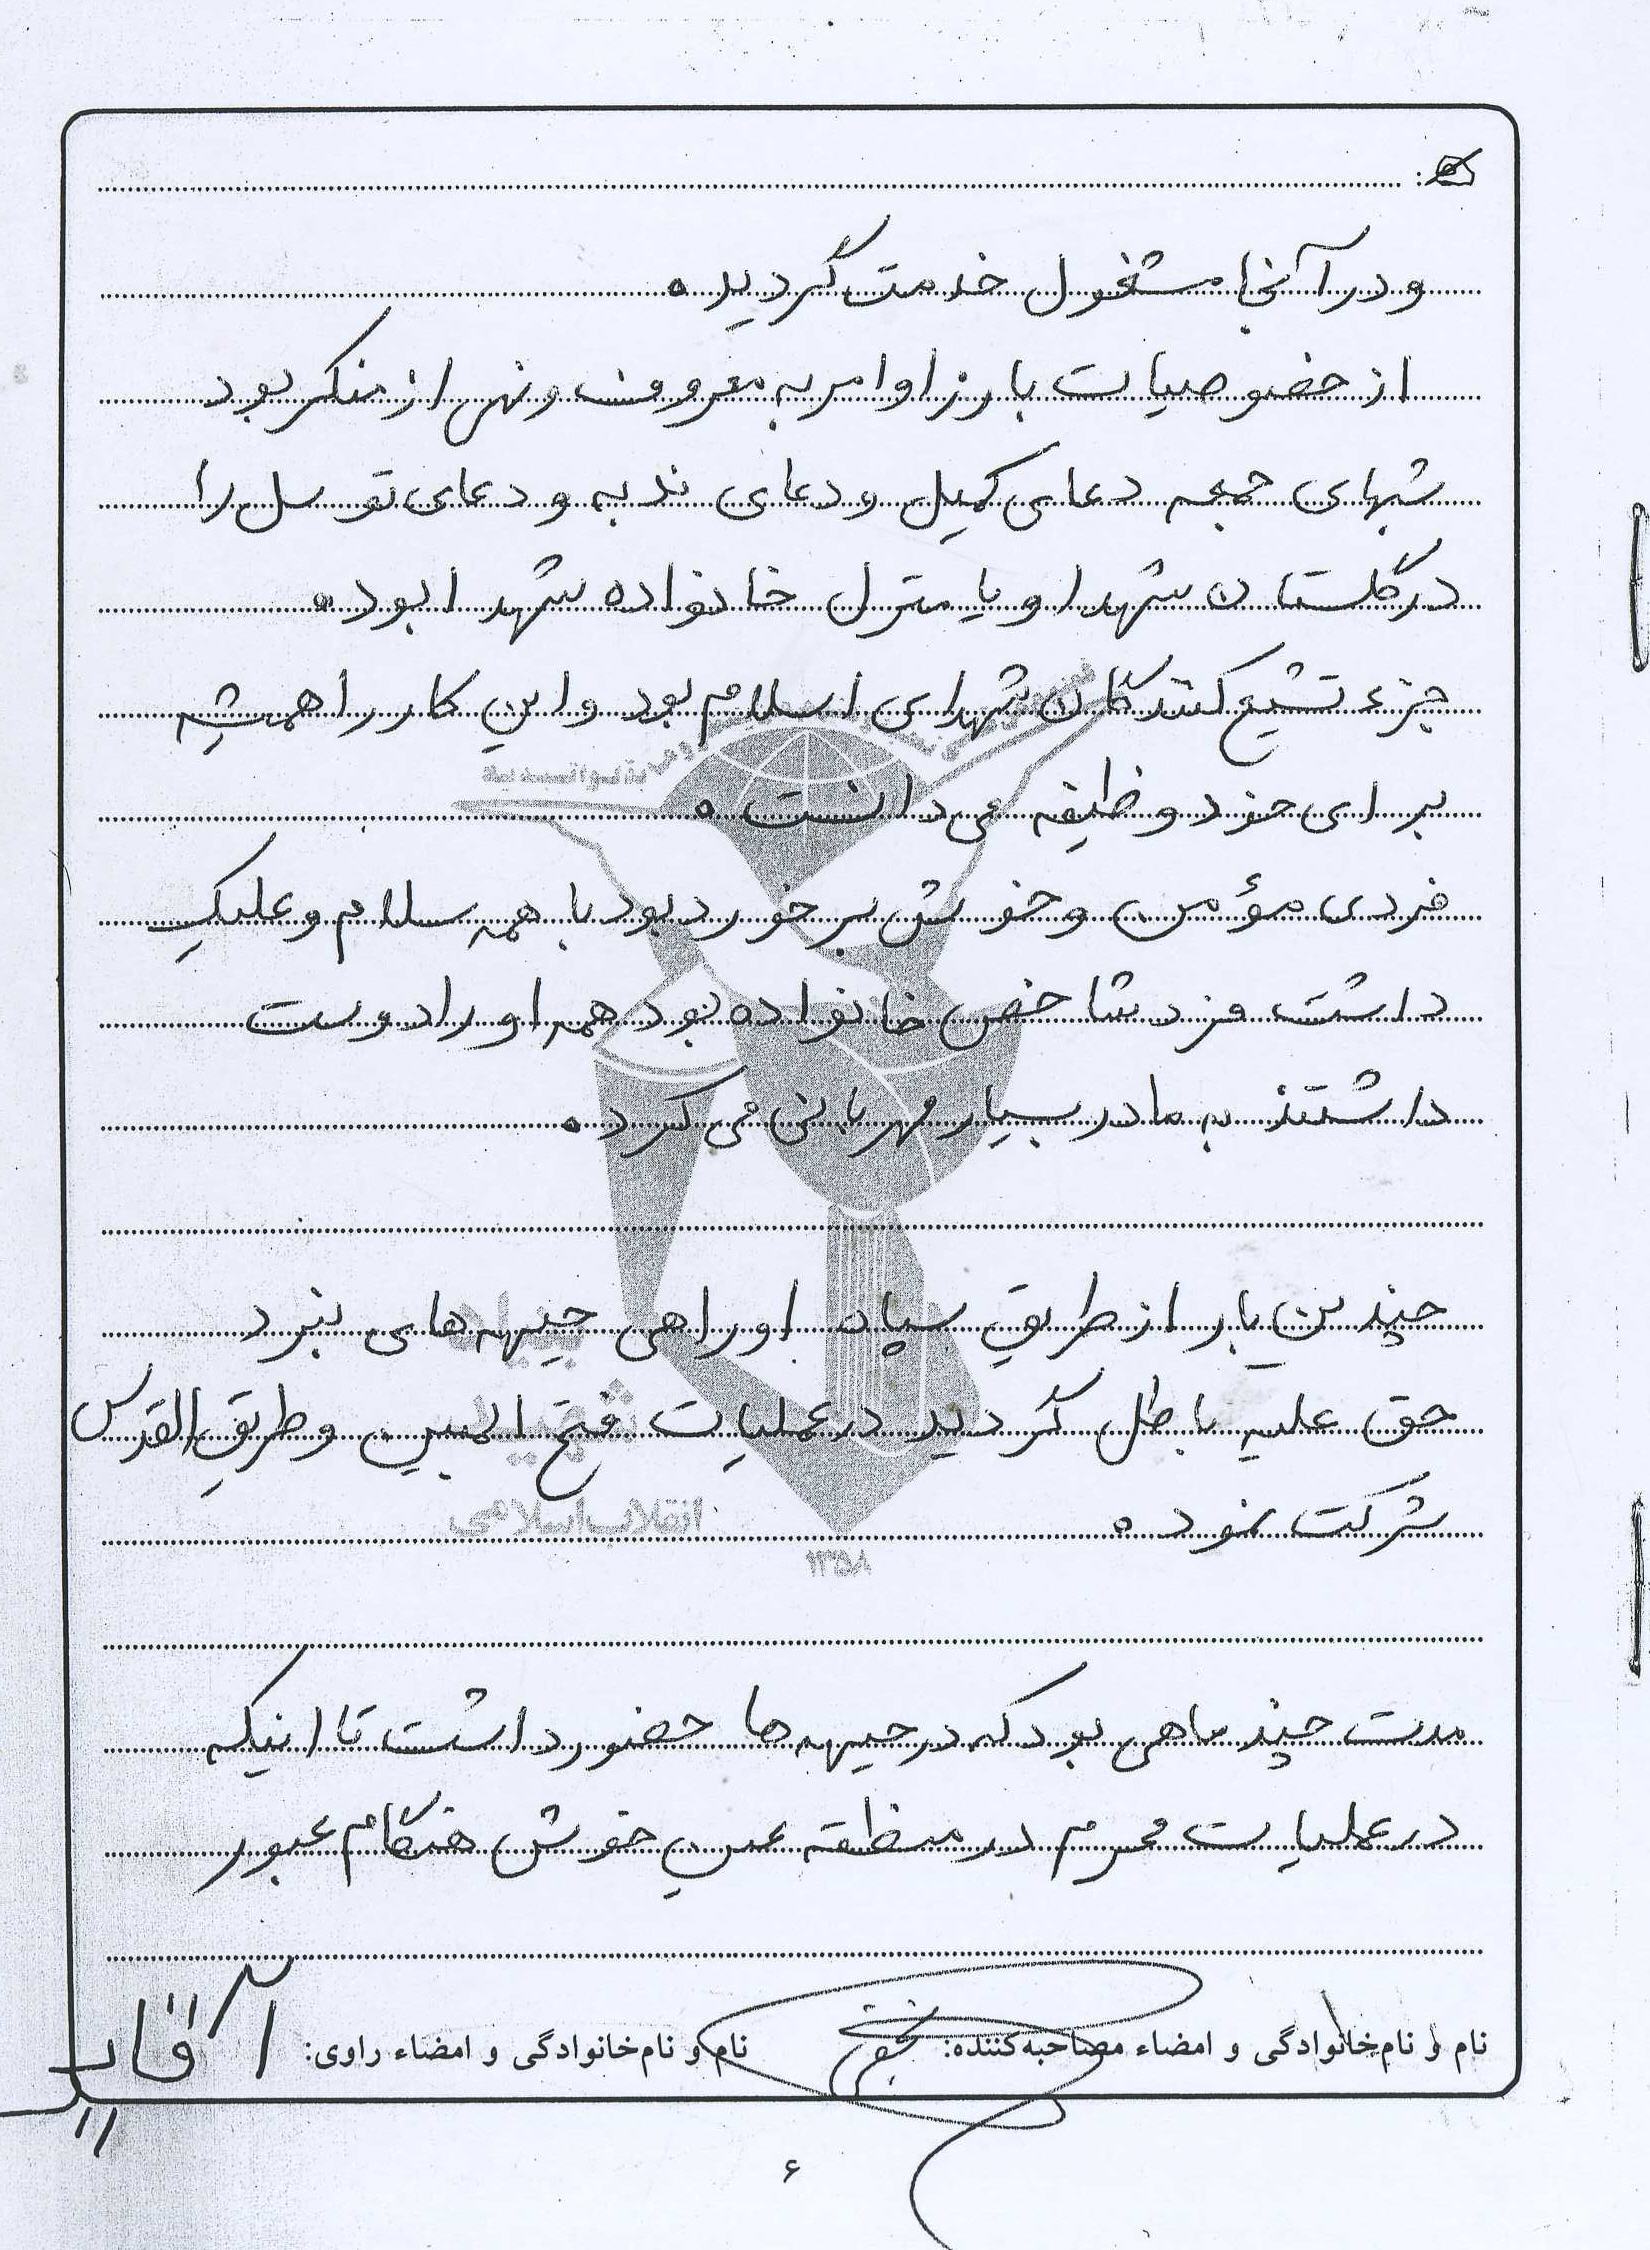 و در آنجا مشغول خدمت گردید.
از خصوصیات بارز او امر به معروف و نهی از منکر بود
شبهای جمعه دعای کمیل و دعای ندبه و دعای توسل را
در گلستان شهدا و یا منزل خانواده شهدا بود.
جزء تشیع کنندگان شهدای اسلام بود و این کار را همیشه
برای خود وظیفه می دانست.
فردی مؤمن و خوش برخورد بود با همه سلام و علیک
داشت فرد شاخص خانواده بود همه او را دوست
داشتند به مادر بسیار مهربانی می کرد.
چندین بار از طریق سپاه او راهی جبهه های نبرد
حق علیه باطل گردید در عملیات فتح المبین و طریق القدس
شرکت نمود.
انقلاب اسلامی
۱۳۵۸
مدت چند ماهی بود که در جبهه ها حضور داشت تا اینکه
در عملیات محرم در منطقه عین خوش هنگام عبور
نام و نام‌خانوادگی و امضاء مصاحبه‌کننده: نام و نام‌خانوادگی و امضاء راوی:
۶